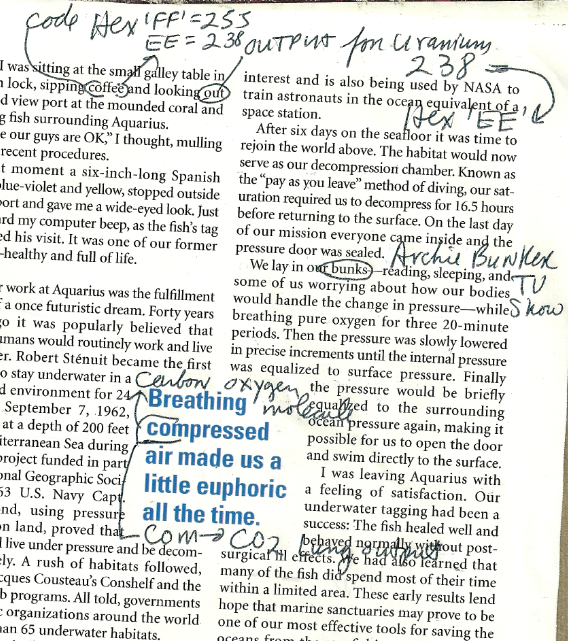 code Hex 'FF' = 255
EE = 238 OUTPUT for Uranium
238
Hex 'EE'
I was sitting at the small galley table in
lock, sipping coffee and looking out
d view port at the mounded coral and
g fish surrounding Aquarius.
e our guys are OK," I thought, mulling
recent procedures.
t moment a six-inch-long Spanish
lue-violet and yellow, stopped outside
port and gave me a wide-eyed look. Just
rd my computer beep, as the fish's tag
ed his visit. It was one of our former
—healthy and full of life.
r work at Aquarius was the fulfillment
f a once futuristic dream. Forty years
go it was popularly believed that
umans would routinely work and live
er. Robert Sténuit became the first
o stay underwater in a
d environment for 24
September 7, 1962,
at a depth of 200 feet
iterranean Sea during
project funded in part
onal Geographic Soci
63 U.S. Navy Capt.
nd, using pressure
on land, proved that
l live under pressure and be decom-
ely. A rush of habitats followed,
cques Cousteau's Conshelf and the
b programs. All told, governments
c organizations around the world
han 65 underwater habitats.
Carbon oxygen
molecule
Breathing
compressed
air made us a
little euphoric
all the time.
COM → CO2 Lung output
interest and is also being used by NASA to
train astronauts in the ocean equivalent of a
space station.
After six days on the seafloor it was time to
rejoin the world above. The habitat would now
serve as our decompression chamber. Known as
the "pay as you leave" method of diving, our sat-
uration required us to decompress for 16.5 hours
before returning to the surface. On the last day
of our mission everyone came inside and the
pressure door was sealed.
Archie Bunker
TV
Show
We lay in our bunks—reading, sleeping, and
some of us worrying about how our bodies
would handle the change in pressure—while
breathing pure oxygen for three 20-minute
periods. Then the pressure was slowly lowered
in precise increments until the internal pressure
was equalized to surface pressure. Finally
the pressure would be briefly
equalized to the surrounding
ocean pressure again, making it
possible for us to open the door
and swim directly to the surface.
I was leaving Aquarius with
a feeling of satisfaction. Our
underwater tagging had been a
success: The fish healed well and
behaved normally without post-
surgical ill effects. We had also learned that
many of the fish did spend most of their time
within a limited area. These early results lend
hope that marine sanctuaries may prove to be
one of our most effective tools for saving the